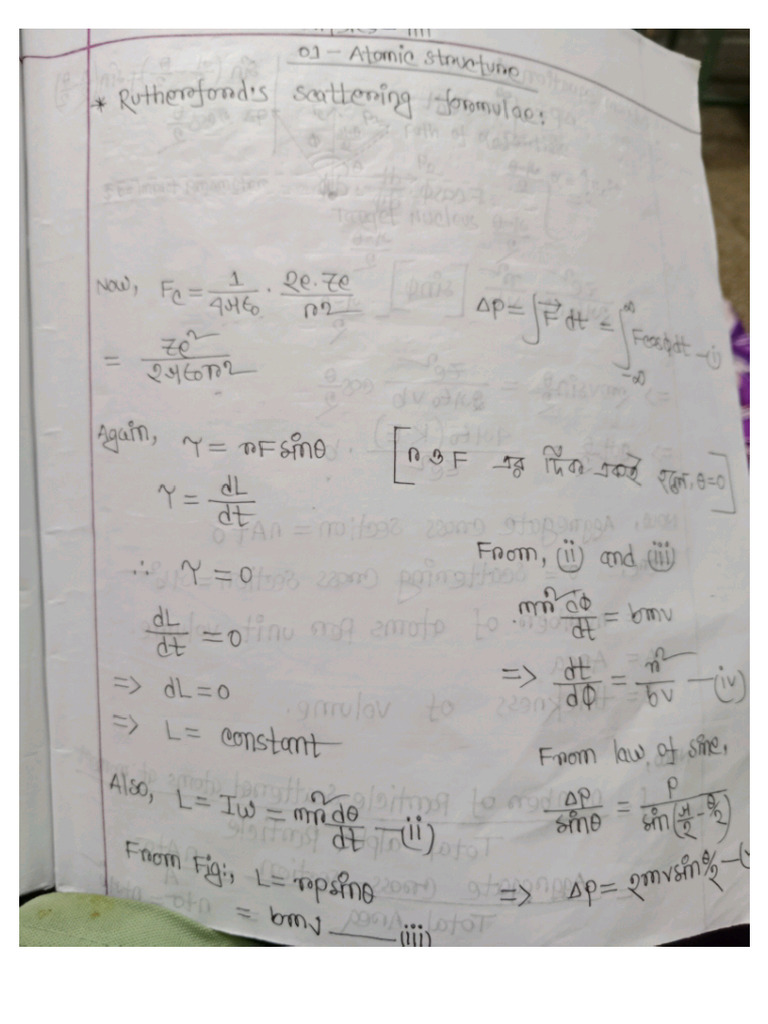 01 - Atomic structure
* Rutherford's scattering formulae:
Now, Fc = 1/4πϵ0 · 2e.Ze/r2
= Ze2/2πϵ0r2
Δp = ∫F⃗ dt = ∫-∞∞ Fcosϕdt —(i)
Again, τ = rF sinθ
[r ও F এর দিক একই হলে, θ=0]
τ = dL/dt
∴ τ = 0
dL/dt = 0
=> dL = 0
=> L = constant
Also, L = Iω = mr2 dθ/dt —(ii)
From Fig:, L = rpsinθ
= bmv ——(iii)
From, (ii) and (iii)
mr2 dϕ/dt = bmv
=> dt/dϕ = r2/bv —(iv)
From law of sine,
Δp/sinθ = p/sin(π/2 - θ/2)
=> Δp = 2mv sin θ/2 —(